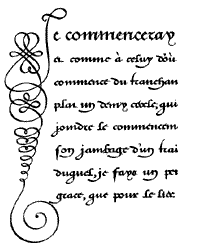 Je commenceray
et comme à celuy d'où
commence du tranchan
plat un demy cercle, qui
joindre le commencem
son jambage d'un trai
duquel, je faxe un pe
grace, que pour le lier